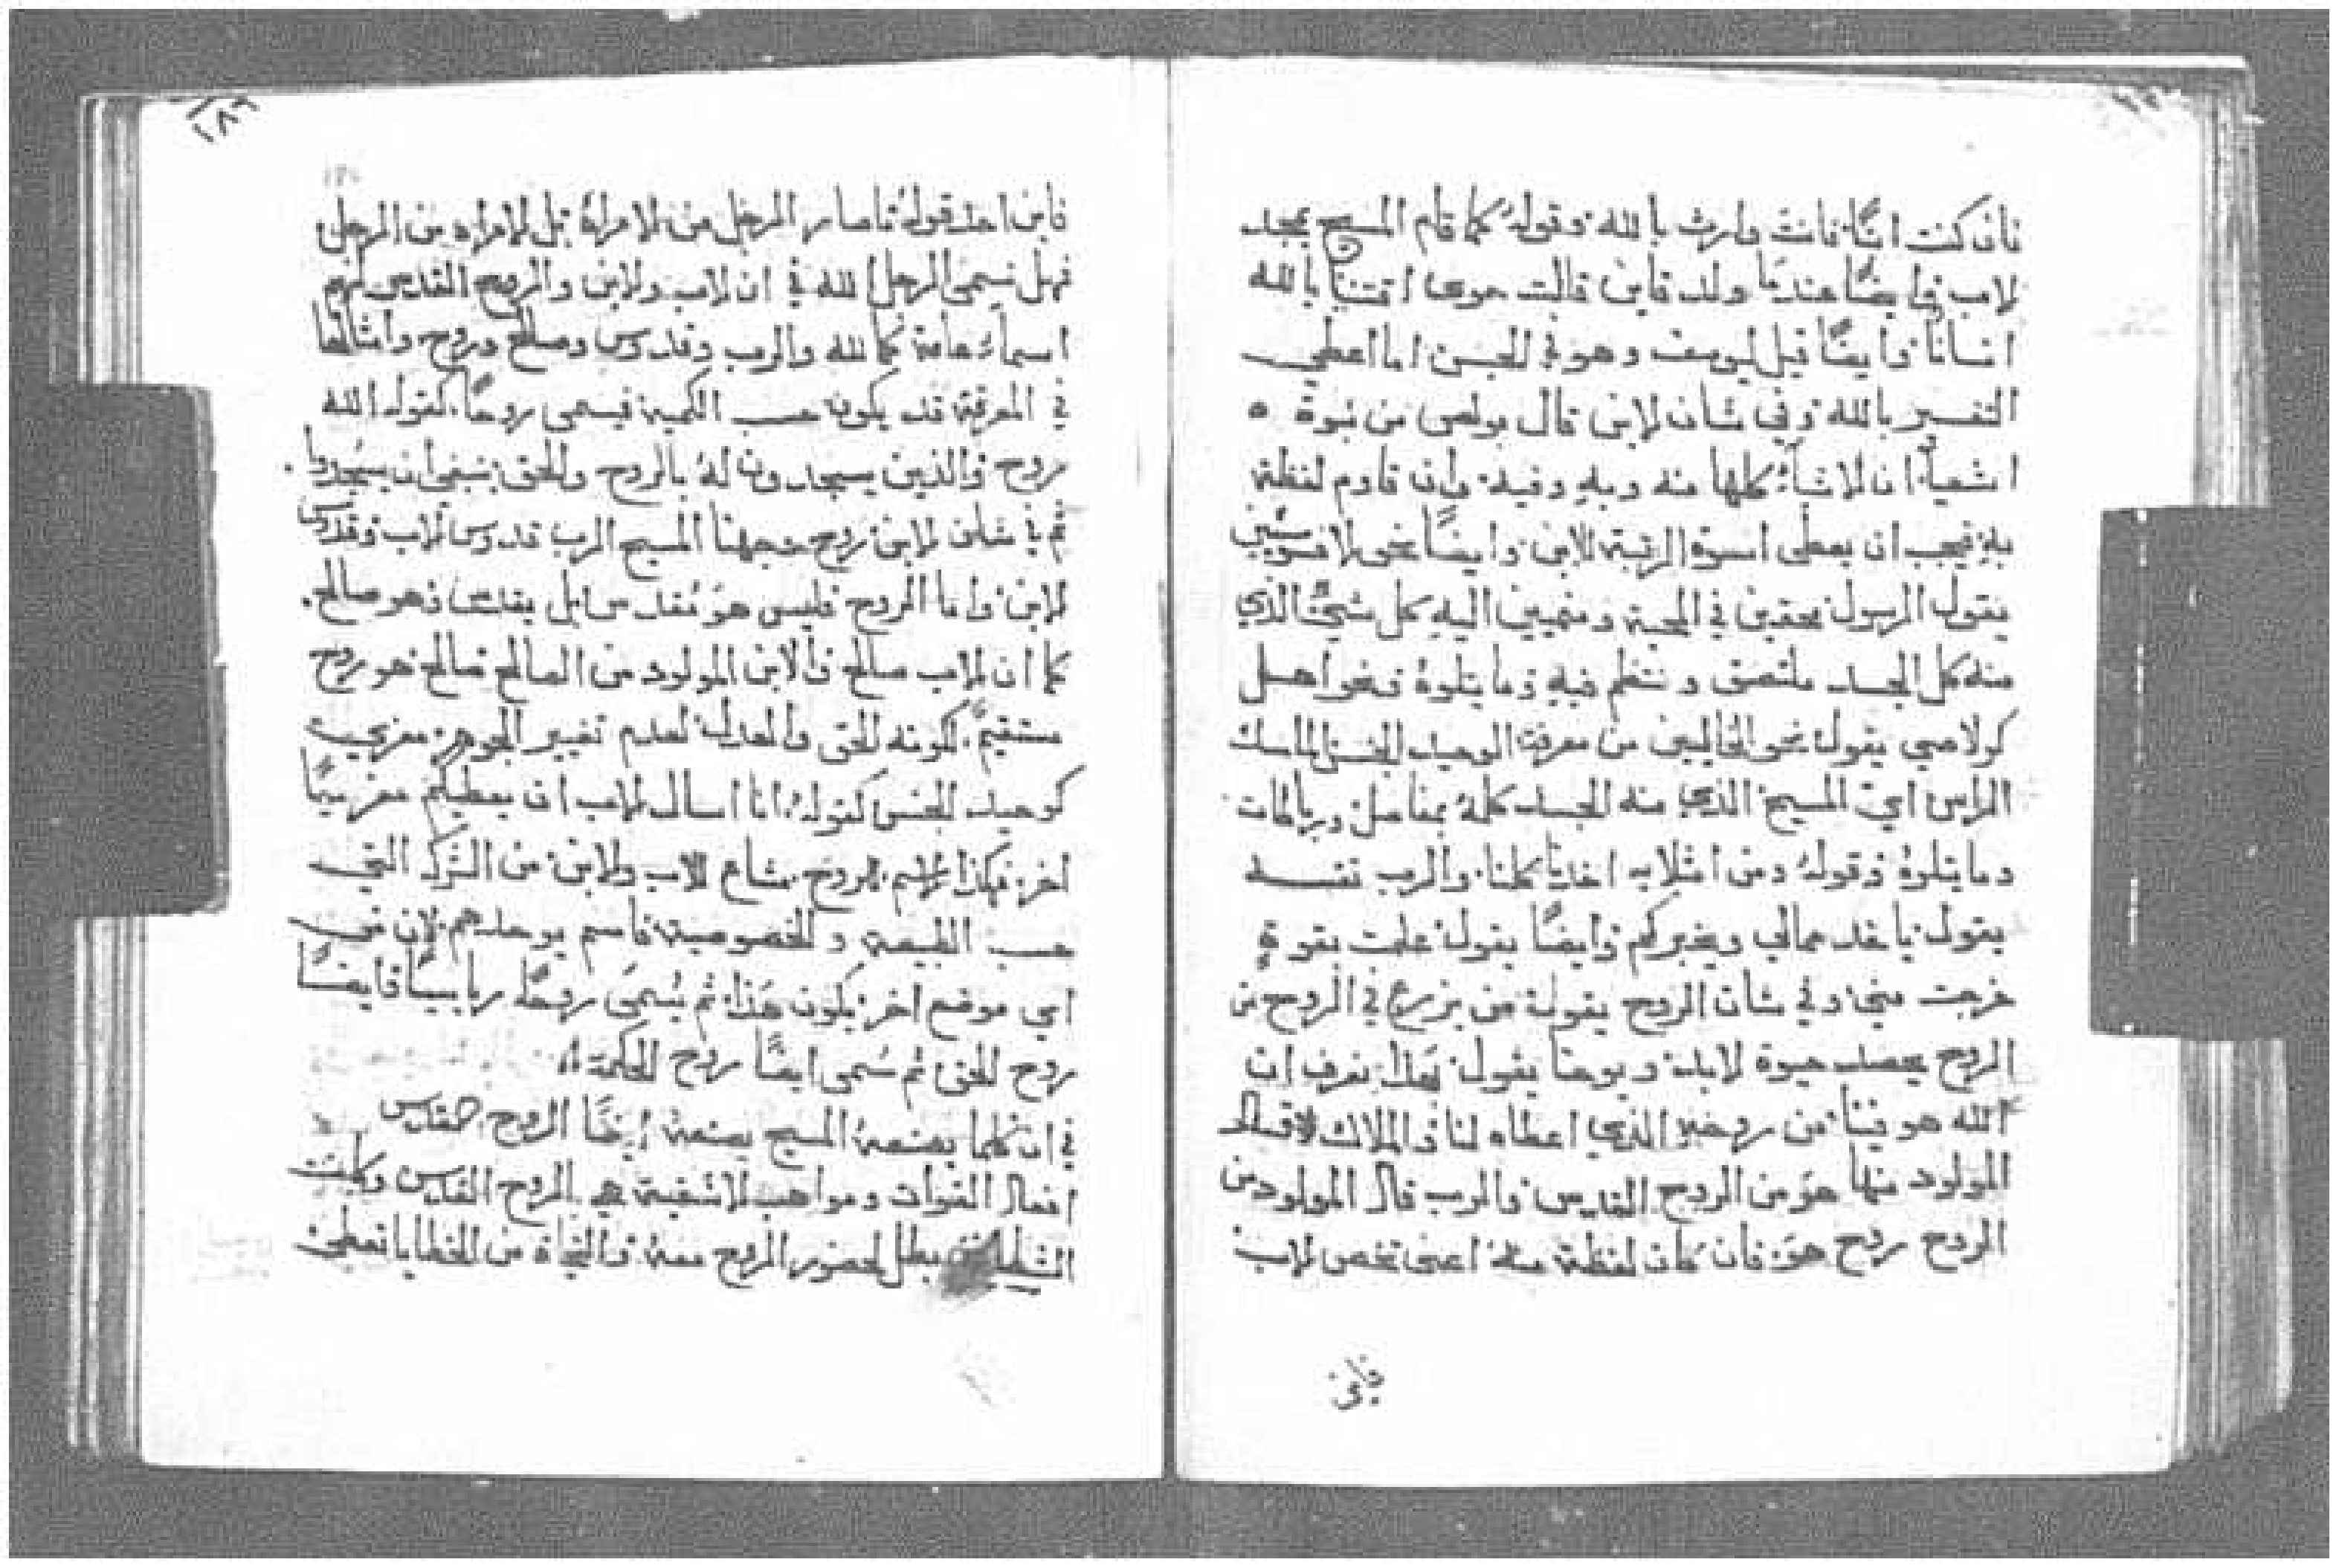 فان كنت ابنًا فانت وارث بالله وقوله كما قام المسيح بمجد
لاب وايضًا عندما ولد قاين قالت حوى اقتنيتا بالله
انسانًا وايضًا قيل ليوسف وهو في الحبس اما اعطي
التفسير بالله وفي شان لابن قال بولص من نبوة
اشعيا ان لاشيآء كلها منه وبه وفيه وان قاوم لفظة
به فيجب ان يعطى اسوة الرتبة للابن وايضًا نحو لافسسيين
يقول الرسول محقين في المحبة ومنميين اليه كل شيء الذي
منه كل الجسد ملتصق ومنتظم فيه وما يتلوه ونحو اهل
كولاصي يقول نحو الخاليين من معرفة الوحيد الجنس الماسك
الراس اي المسيح الذي منه الجسد كله بمفاصل ورباطات
وما يتلوه وقوله ومن امتلايه اخذنا كلنا والرب نفسه
يقول ياخذ ممالي ويخبركم وايضًا يقول علمت بقوة
خرجت مني وفي شان الروح يقول من يزرع في الروح من
الروح يحصد حيوة لابد ويوحنا يقول بهذا نعرف ان
الله هو فينا من روحه الذي اعطاه لنا والملاك قال
المولود منها هو من الروح القدس والرب قال المولود من
الروح روح هو فان كان لفظة منه اعني تخص لاب
فاين
١٨٢
فاين اخذ قوله ما صار الرجل من لامراة بل لامراه من الرجل
فهل نسمى الرجل الله في ان لاب ولابن والروح القدس لهم
اسمآء عامة كالله والرب وقدوس وصالح وروح وامثالها
في المعرفة قد يكون حسب الكمية فيسمى روحًا كقوله الله
روح والذين يسجدون له بالروح والحق ينبغي ان يسجدوا
ثم في شان لابن روح وجهنا المسيح الرب قدوس لاب وقدوس
لابن واما الروح فليس هو مقدسا بل يقدس وهو صالح
كما ان لاب صالح والابن المولود من الصالح صالح هو روح
مستقيم لكونه الحق والعدل لعدم تغيير الجوهر معزي
كوحيد الجنس كقوله انا اسال لاب ان يعطيكم معزيًا
اخر فهكذا لاسم الروح مشاع للاب ولابن من الشركه التي
حسب الطبيعة والخصوصية فاسم يوحدهم لان في
اي موضع اخر يكون هذا ثم يسمى روحًا ربابيًا وايضًا
روح الحق ثم سمى ايضًا روح الحكمة
في ان كلما يصنعه المسيح يصنعه ايضًا الروح القدس
افعال القوات ومواهب لاشفية هي بالروح القدس وكانت
الشياطين بطل لحضور الروح معه والنجاة من الخطايا تعطى